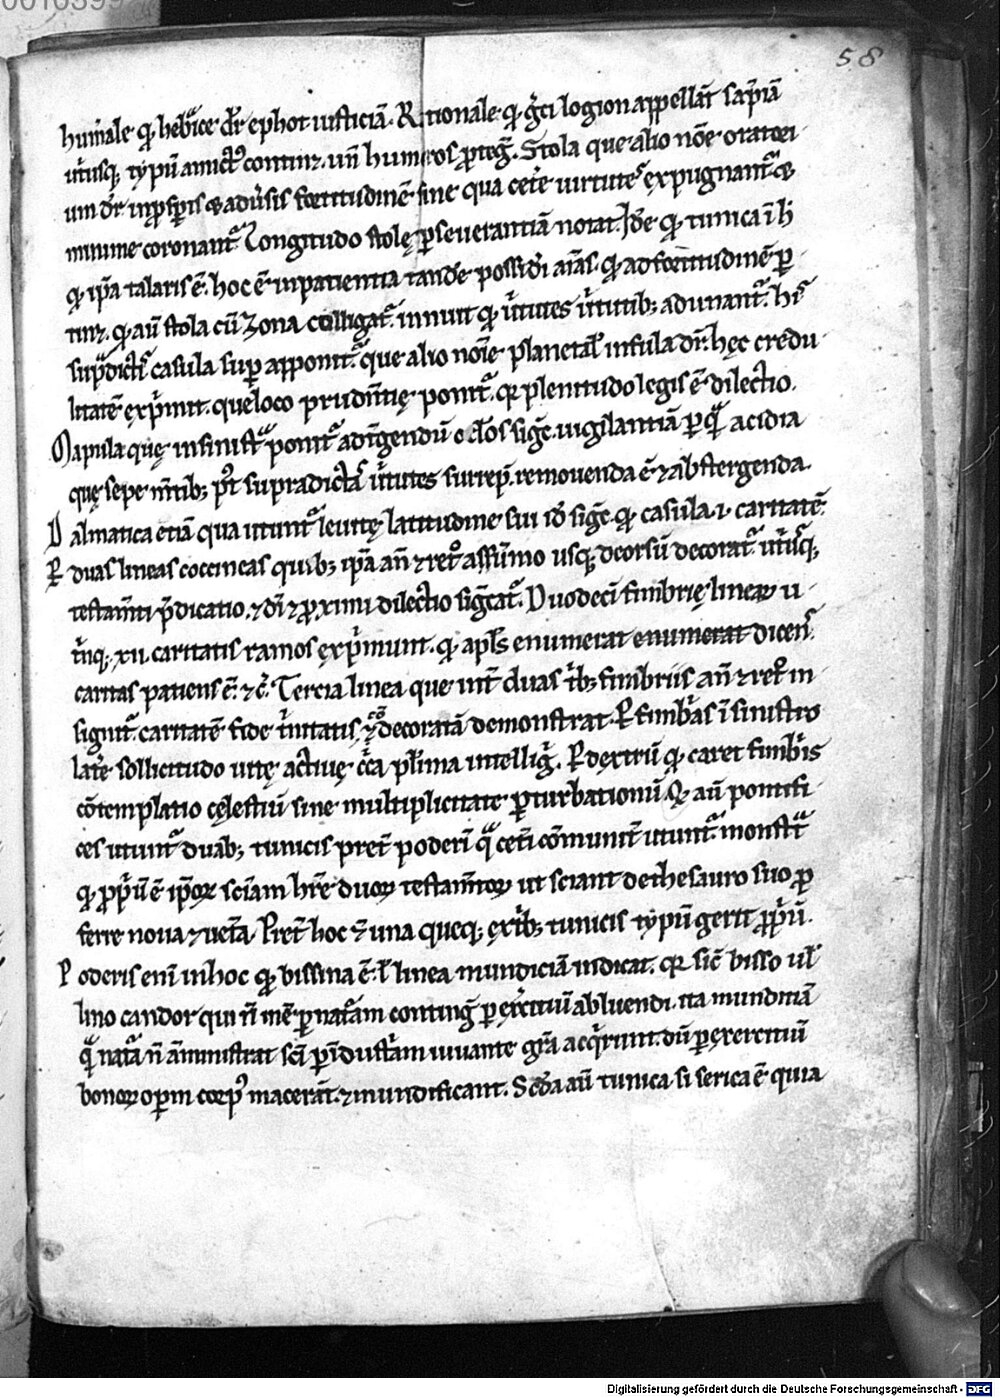 58
humale qd hebice dr ephot iusticia. Rationale qd gci logion appellat sapia
utusq; typu amict continz. un humeros pteg. Stola que alio noe oratori
um dr inpspis & adusis fortitudine sine qua cete uirtutes expugnant &
minime coronant. Longitudo stole pseuerantia notat. Ide qd tunica i h
qd ipa talaris e. hoc e inpatientia tande possideri aias. qd ad fortitudine p
tinz. qd au stola cu zona colligat. innuit qd ututes ututib; adunant. his
supdictis casula sup apponit que alio noie planeta l infula dr. hec credu
litate exprimit. que loco prudentie ponit. qr plenitudo legis e dilectio.
Mapula que in sinist ponit ad tgendu oclos sige. uigilantia p qua acidia
que sepe mtib; pt supradictas ututes surrep. remouenda e & abstergenda.
Dalmatica etia qua utunt leuite latitudine sui id sige. qd casula .i. caritate
P duas lineas coccineas quib; ipa an & reto a summo usq; deorsu decorat utiusq;
testamti pdicatio. & di & pximi dilectio sigcat. Duodeci fimbrie linear u
tinq; xii. caritatis ramos exprimunt. qd apls enumerat enumerat dicens
caritas patiens e. & c. Tercia linea que int duas tib; fimbriis an & reto in
signit. caritate fide tinitatis decorata demonstrat. P fimbias i sinistro
late sollicitudo uite actiue cca plima intellig. P dextru qd caret fimbiis
contemplatio celestiu sine multiplicitate pturbationu. Qd au pontifi
ces utunt duab; tunicis pret poderi qua ceti comunit utunt. monstrat
qd ppriu e ipor scia hre duor testamtor ut sciant de thesauro suo p
ferre noua & ueta. Pret hoc & una queq; ex tib; tunicis typu gerit ppiu.
Poderis eni in hoc qd bissina e. l linea mundicia indicat. qr sic bisso ul
lino candor qui n ine p natam conting p exercitiu abluendi. ita mundicia
qua nata n amministrat sci p industiam iuuante gra acqirunt. du p exercitiu
bonor opum corp macerat. & mundificant. Scda au tunica si serica e quia
Digitalisierung gefördert durch die Deutsche Forschungsgemeinschaft - DFG